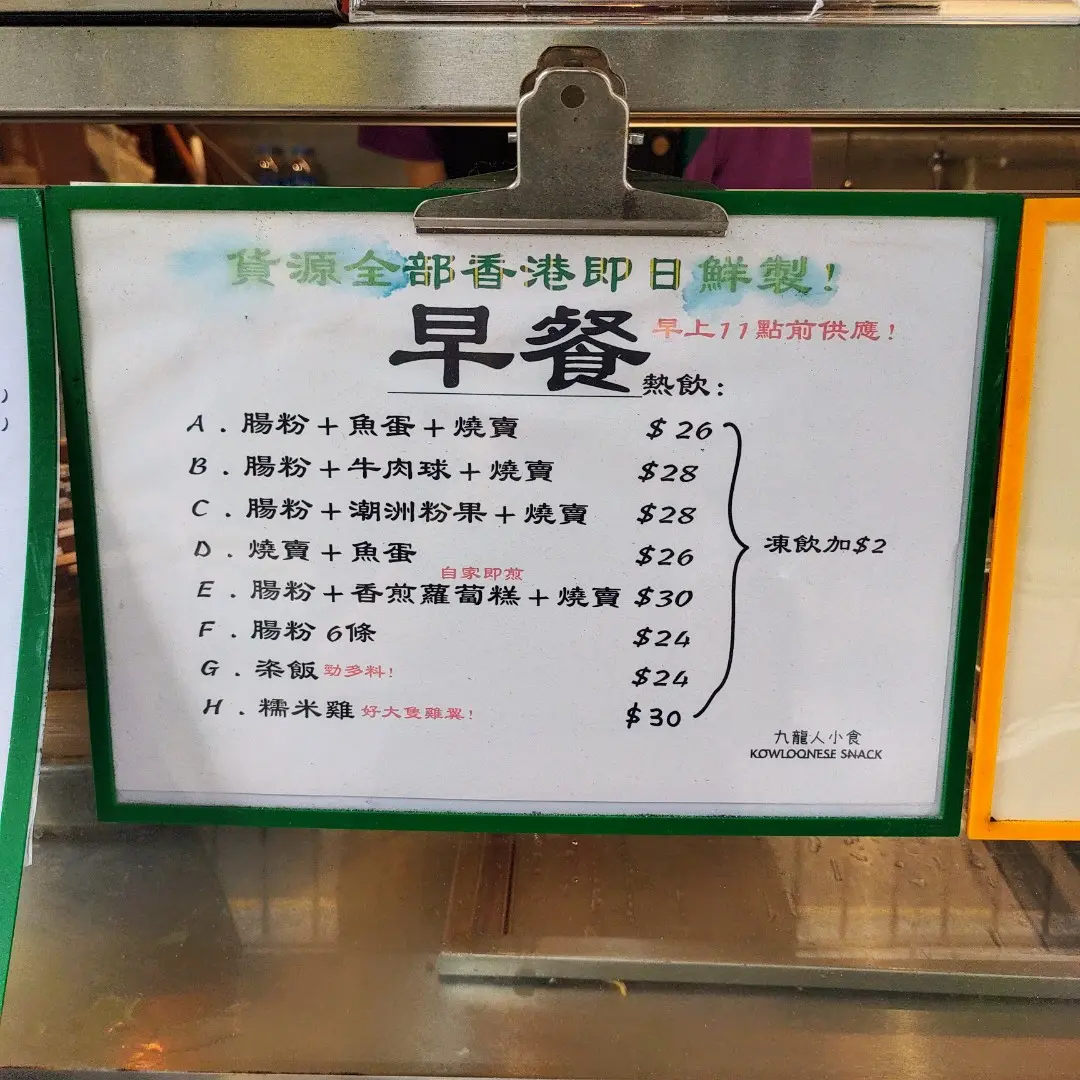 貨源全部香港即日鮮製!
早餐 早上11點前供應!
熱飲:
A. 腸粉+魚蛋+燒賣 $26
B. 腸粉+牛肉球+燒賣 $28
C. 腸粉+潮洲粉果+燒賣 $28
D. 燒賣+魚蛋 $26
自家即煎
E. 腸粉+香煎蘿蔔糕+燒賣 $30
F. 腸粉6條 $24
G. 粢飯 勁多料! $24
H. 糯米雞 好大隻雞翼! $30
凍飲加$2
九龍人小食
KOWLOONESE SNACK